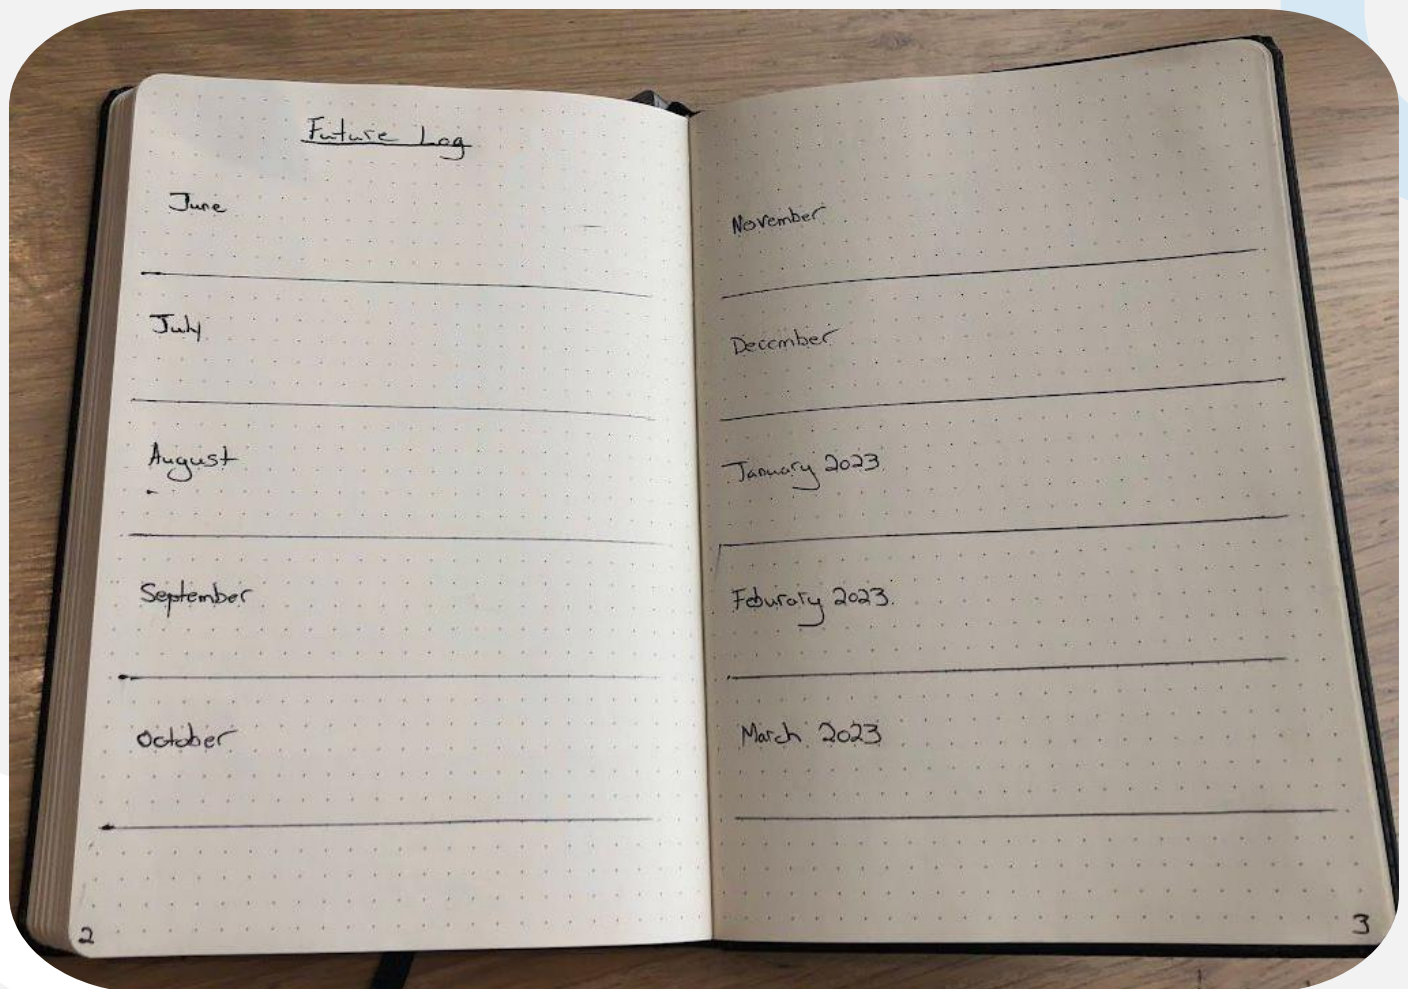 Future Log
June
July
August
September
October
2
November
December
January 2023
Feburary 2023
March 2023
3